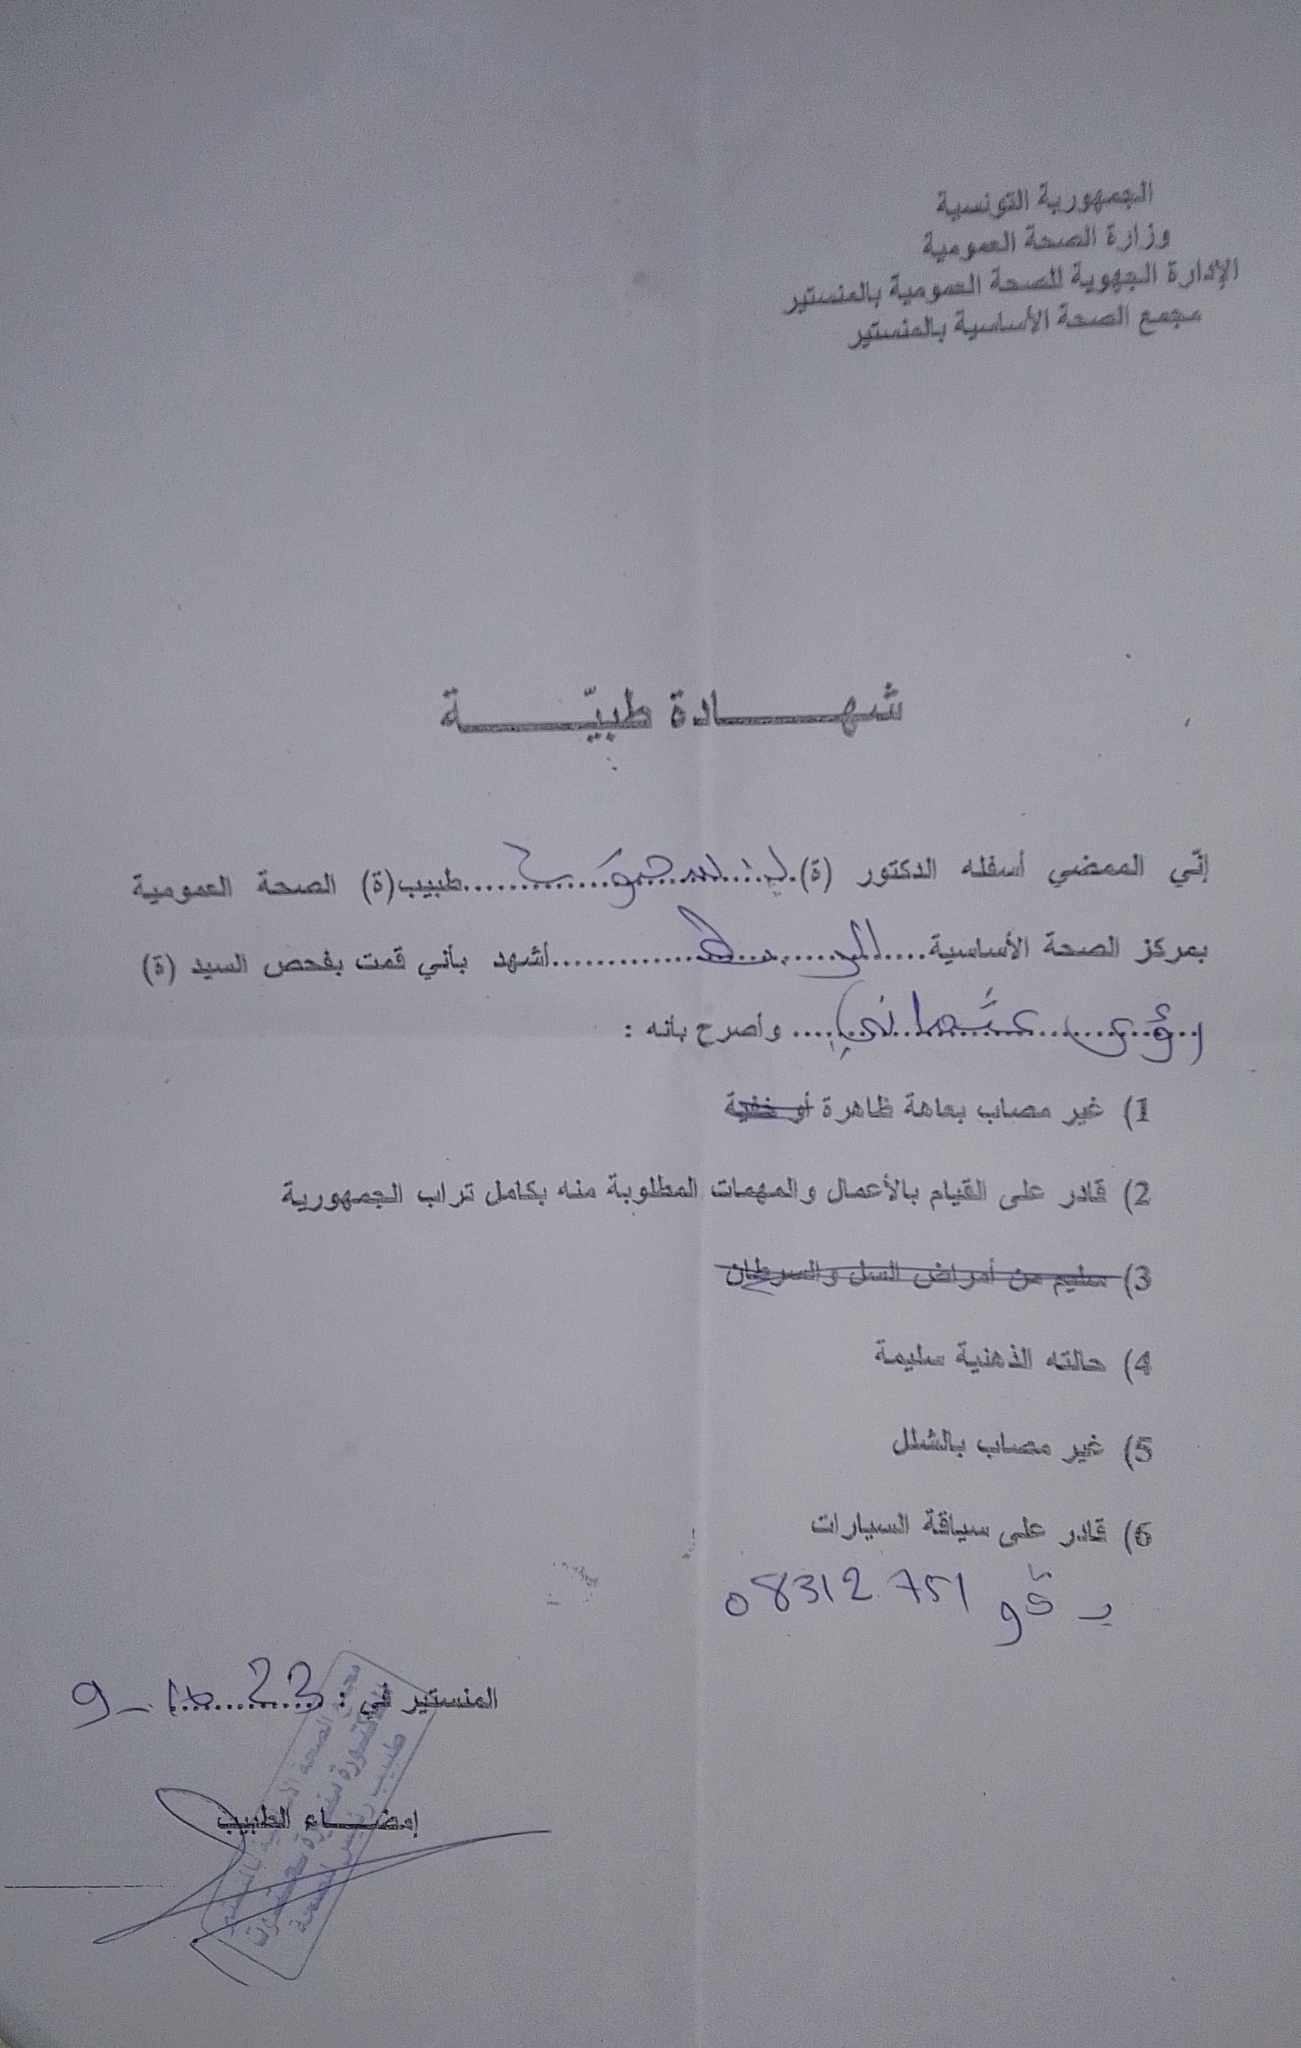 الجمهورية التونسية
وزارة الصحة العمومية
الإدارة الجهوية للصحة العمومية بالمنستير
مجمع الصحة الأساسية بالمنستير
شهـــــادة طبيّـــــــة
إنّي الممضي أسفله الدكتور (ة) ............ طبيب(ة) الصحة العمومية
بمركز الصحة الأساسية ............ أشهد بأني قمت بفحص السيد (ة)
رؤى عثماني .... وأصرح بأنه :
1) غير مصاب بعاهة ظاهرة أو خفية
2) قادر على القيام بالأعمال والمهمات المطلوبة منه بكامل تراب الجمهورية
3) سليم من أمراض السل والسرطان
4) حالته الذهنية سليمة
5) غير مصاب بالشلل
6) قادر على سياقة السيارات
08312751
المنستير في : 23
إمضـــاء الطبيب